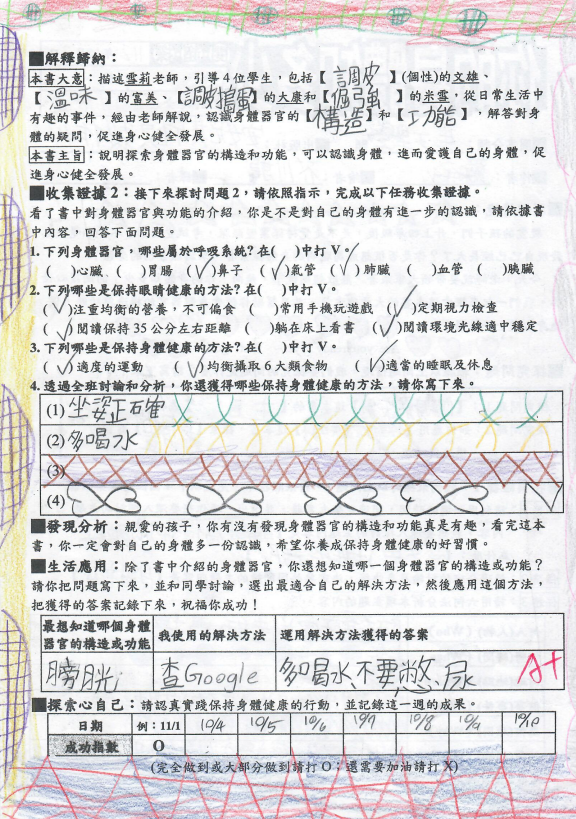 ■解釋歸納：
本書大意：描述雪莉老師，引導4位學生，包括【調皮】(個性)的文雄、
【溫味】的富美、【調皮搗蛋】的大康和【倔強】的米雪，從日常生活中
有趣的事件，經由老師解說，認識身體器官的【構造】和【功能】，解答對身
體的疑問，促進身心健全發展。
本書主旨：說明探索身體器官的構造和功能，可以認識身體，進而愛護自己的身體，促
進身心健全發展。
■收集證據2：接下來探討問題2，請依照指示，完成以下任務收集證據。
看了書中對身體器官與功能的介紹，你是不是對自己的身體有進一步的認識，請依據書
中內容，回答下面問題。
1.下列身體器官，哪些屬於呼吸系統？在( )中打V。
( )心臟 ( )胃腸 (✓)鼻子 (✓)氣管 (✓)肺臟 ( )血管 ( )胰臟
2.下列哪些是保持眼睛健康的方法？在( )中打V。
(✓)注重均衡的營養，不可偏食 ( )常用手機玩遊戲 (✓)定期視力檢查
(✓)閱讀保持35公分左右距離 ( )躺在床上看書 (✓)閱讀環境光線適中穩定
3.下列哪些是保持身體健康的方法？在( )中打V。
(✓)適度的運動 (✓)均衡攝取6大類食物 (✓)適當的睡眠及休息
4.透過全班討論和分析，你還獲得哪些保持身體健康的方法，請你寫下來。
(1)坐姿正確
(2)多喝水
(3)
(4)
■發現分析：親愛的孩子，你有沒有發現身體器官的構造和功能真是有趣，看完這本
書，你一定會對自己的身體多一份認識，希望你養成保持身體健康的好習慣。
■生活應用：除了書中介紹的身體器官，你還想知道哪一個身體器官的構造或功能？
請你把問題寫下來，並和同學討論，選出最適合自己的解決方法，然後應用這個方法，
把獲得的答案記錄下來，祝福你成功！
最想知道哪個身體器官的構造或功能 我使用的解決方法 運用解決方法獲得的答案
膀胱 查Google 多喝水、不要憋尿 A+
■探索心自己：請認真實踐保持身體健康的行動，並記錄這一週的成果。
日期 例：11/1 10/4 10/5 10/6 10/7 10/8 10/9 10/10
成功指數 O
(完全做到或大部分做到請打O；還需要加油請打X)